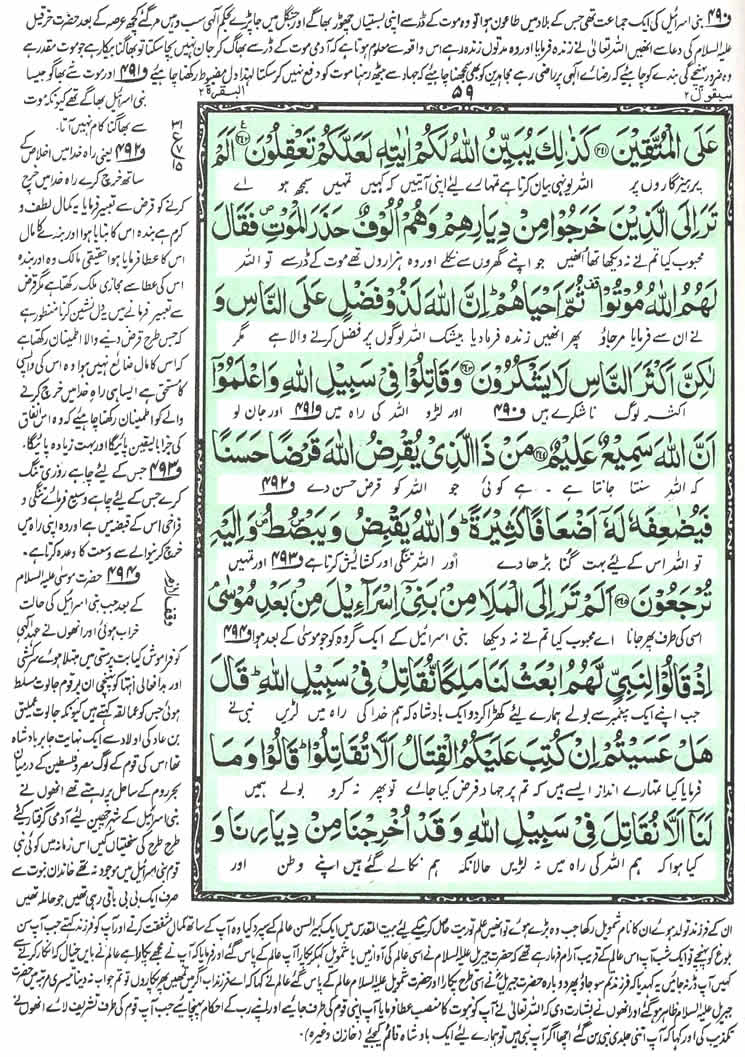 ف۴۹۰ بنی اسرائیل کی ایک جماعت تھی جس کے بلاد میں طاعون ہوا تو وہ موت کے ڈر سے اپنی بستیاں چھوڑ بھاگے اور جنگل میں جا پڑے بحکمِ الٰہی سب وہیں مر گئے کچھ عرصہ کے بعد حضرت حزقیل
علیہ السلام کی دعا سے انھیں اللہ تعالیٰ نے زندہ فرمایا اور وہ مدتوں زندہ رہے اس واقعہ سے معلوم ہوتا ہے کہ آدمی موت کے ڈر سے بھاگ کر جان نہیں بچا سکتا تو بھاگنا بیکار ہے جو موت مقدر ہے
وہ ضرور پہنچے گی بندے کو چاہیے کہ رضائے الٰہی پر راضی رہے مجاہدین کو بھی سمجھنا چاہیے کہ جہاد سے بیٹھ رہنا موت کو دفع نہیں کر سکتا لہٰذا دل مضبوط رکھنا چاہیے ف۴۹۱ اور موت سے بھاگو جیسا
سیقول ۲
۵۹
البقرۃ ۲
بنی اسرائیل بھاگے تھے کیونکہ موت
سے بھاگنا کام نہیں آتا۔
ف۴۹۲ یعنی راہِ خدا میں اخلاص کے
ساتھ خرچ کرے راہِ خدا میں خرچ
کرنے کو قرض سے تعبیر فرمایا یہ کمال لطف و
کرم ہے بندہ اس کا بنایا ہوا اور بندے کا مال
اس کا عطا فرمایا ہوا حقیقی مالک وہ اور بندہ
اس کی عطا سے مجازی ملک رکھتا ہے مگر قرض
سے تعبیر فرمانے میں یہ دل نشین کرنا منظور ہے
کہ جس طرح قرض دینے والا اطمینان رکھتا ہے
کہ اس کا مال ضائع نہیں ہوا وہ اس کی واپسی
کا مستحق ہے ایسا ہی راہِ خدا میں خرچ کرنے
والے کو اطمینان رکھنا چاہیے کہ وہ اس انفاق
کی جزا بالیقین پائیگا اور بہت زیادہ پائیگا۔
ف۴۹۳ جس کے لئے چاہے روزی تنگ
کرے جس کے لئے چاہے وسیع فرمائے تنگی و
فراخی اس کے قبضہ میں ہے اور وہ اپنی راہ میں
خرچ کرنیوالے سے وسعت کا وعدہ کرتا ہے۔
ف۴۹۴ حضرت موسیٰ علیہ السلام
کے بعد جب بنی اسرائیل کی حالت
خراب ہوئی اور انھوں نے عہد الٰہی
کو فراموش کیا بت پرستی میں مبتلا ہوئے سرکشی
اور بد افعالی انتہا کو پہنچی ان پر قوم جالوت مسلط
ہوئی جس کو عمالقہ کہتے ہیں کیونکہ جالوت عملیق
بن عاد کی اولاد سے ایک نہایت جابر بادشاہ
تھا اس کی قوم کے لوگ مصر و فلسطین کے درمیان
بحر روم کے ساحل پر رہتے تھے انھوں نے
بنی اسرائیل کے شہر چھین لئے آدمی گرفتار کیئے
طرح طرح کی سختیاں کیں اس زمانہ میں کوئی نبی
قوم بنی اسرائیل میں موجود نہ تھے خاندان نبوت سے
صرف ایک بی بی باقی رہی تھیں جو حاملہ تھیں
عَلَى الْمُتَّقِيْنَ ﴿۲۴۱﴾ كَذٰلِكَ يُبَيِّنُ اللّٰهُ لَكُمْ اٰيٰتِهٖ لَعَلَّكُمْ تَعْقِلُوْنَ ﴿۲۴۲﴾ اَلَمْ
پرہیزگاروں پر اللہ یونہی بیان کرتا ہے تمہارے لئے اپنی آیتیں کہ کہیں تمہیں سمجھ ہو اے
تَرَ اِلَى الَّذِيْنَ خَرَجُوْا مِنْ دِيَارِهِمْ وَهُمْ اُلُوْفٌ حَذَرَ الْمَوْتِ ۪ فَقَالَ
محبوب کیا تم نے نہ دیکھا تھا انھیں جو اپنے گھروں سے نکلے اور وہ ہزاروں تھے موت کے ڈر سے تو اللہ
لَهُمُ اللّٰهُ مُوْتُوْا ۫ ثُمَّ اَحْيَاهُمْ ؕ اِنَّ اللّٰهَ لَذُوْ فَضْلٍ عَلَى النَّاسِ وَ
نے ان سے فرمایا مر جاؤ پھر انھیں زندہ فرما دیا بیشک اللہ لوگوں پر فضل کرنے والا ہے مگر
لٰكِنَّ اَكْثَرَ النَّاسِ لَا يَشْكُرُوْنَ ﴿۲۴۳﴾ وَقَاتِلُوْا فِيْ سَبِيْلِ اللّٰهِ وَاعْلَمُوْٓا
اکثر لوگ ناشکرے ہیں ف۴۹۰ اور لڑو اللہ کی راہ میں ف۴۹۱ اور جان لو
اَنَّ اللّٰهَ سَمِيْعٌ عَلِيْمٌ ﴿۲۴۴﴾ مَنْ ذَا الَّذِيْ يُقْرِضُ اللّٰهَ قَرْضًا حَسَنًا
کہ اللہ سنتا جانتا ہے ۔ ہے کوئی جو اللہ کو قرض حسن دے ف۴۹۲
فَيُضٰعِفَهٗ لَهٗٓ اَضْعَافًا كَثِيْرَةً ؕ وَاللّٰهُ يَقْبِضُ وَيَبْصُۜطُ ۪ وَاِلَيْهِ
تو اللہ اس کے لئے بہت گنا بڑھا دے اور اللہ تنگی اور کشائش کرتا ہے ف۴۹۳ اور تمہیں
تُرْجَعُوْنَ ﴿۲۴۵﴾ اَلَمْ تَرَ اِلَى الْمَلَاِ مِنْ بَنِيْٓ اِسْرَآءِيْلَ مِنْ بَعْدِ مُوْسٰى
اسی کی طرف پھر جانا اے محبوب کیا تم نے نہ دیکھا بنی اسرائیل کے ایک گروہ کو جو موسیٰ کے بعد ہوا ف۴۹۴
اِذْ قَالُوْا لِنَبِيٍّ لَّهُمُ ابْعَثْ لَنَا مَلِكًا نُّقَاتِلْ فِيْ سَبِيْلِ اللّٰهِ ؕ قَالَ
جب اپنے ایک پیغمبر سے بولے ہمارے لیئے کھڑا کر دو ایک بادشاہ کہ ہم خدا کی راہ میں لڑیں نبی نے
هَلْ عَسَيْتُمْ اِنْ كُتِبَ عَلَيْكُمُ الْقِتَالُ اَلَّا تُقَاتِلُوْا ؕ قَالُوْا وَمَا
فرمایا کیا تمہارے انداز ایسے ہیں کہ تم پر جہاد فرض کیا جائے تو پھر نہ کرو بولے ہمیں
لَنَآ اَلَّا نُقَاتِلَ فِيْ سَبِيْلِ اللّٰهِ وَقَدْ اُخْرِجْنَا مِنْ دِيَارِنَا وَ
کیا ہوا کہ ہم اللہ کی راہ میں نہ لڑیں حالانکہ ہم نکالے گئے ہیں اپنے وطن اور
ان کے فرزند تولد ہوئے ان کا نام شمویل رکھا جب وہ بڑے ہوئے تو انھیں علم توریت حاصل کرنیکے لئے بیت المقدس میں ایک کبیر السن عالم کے سپرد کیا وہ آپ کے ساتھ کمال شفقت کرتے اور آپ کو فرزند کہتے جب آپ سن
بلوغ کو پہنچے تو ایک شب آپ اس عالم کے قریب آرام فرما رہے تھے کہ حضرت جبریل علیہ السلام نے اسی عالم کی آواز میں یا شمویل کہکر پکارا آپ عالم کے پاس گئے اور فرمایا کہ آپ نے مجھے پکارا ہے عالم نے بایں خیال کہ انکار کرنے سے
کہیں آپ ڈر نہ جائیں یہ کہدیا کہ فرزند تم سو جاؤ پھر دوبارہ حضرت جبریل نے اسی طرح پکارا اور حضرت شمویل علیہ السلام عالم کے پاس گئے عالم نے کہا کہ اے فرزند اب اگر میں تمہیں پھر پکاروں تو تم جواب نہ دینا تیسری مرتبہ میں حضرت
جبریل علیہ السلام ظاہر ہو گئے اور انھوں نے بشارت دی کہ اللہ تعالیٰ نے آپ کو نبوت کا منصب عطا فرمایا آپ اپنی قوم کی طرف جائیے اور اپنے رب کے احکام پہنچائیے جب آپ قوم کی طرف تشریف لائے انھوں نے
تکذیب کی اور کہا کہ آپ اتنی جلدی نبی بن گئے اچھا اگر آپ نبی ہیں تو ہمارے لیئے ایک بادشاہ قائم کیجئے (خازن وغیرہ)۔